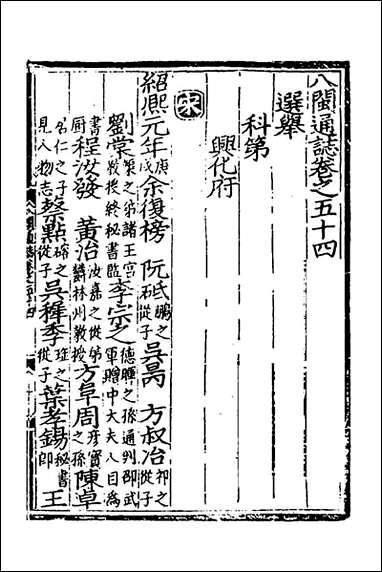 八閩通誌卷之五十四
選舉
科第
興化府
宋
紹熙元年庚戌余復榜 阮砥鵬之從子吳暠 方叔冶祁之從子
劉棠榘之弟諸王宮教授終秘書監李宗之德暉之孫通判邵武軍贈中大夫八目爲
書厨程汝發 黃治汝嘉之從弟鬱林州教授方阜周彦實之孫陳卓
名仁之子見人物志蔡點碲之從子吳秤季珏之從子葉孝錫易秘書郎王